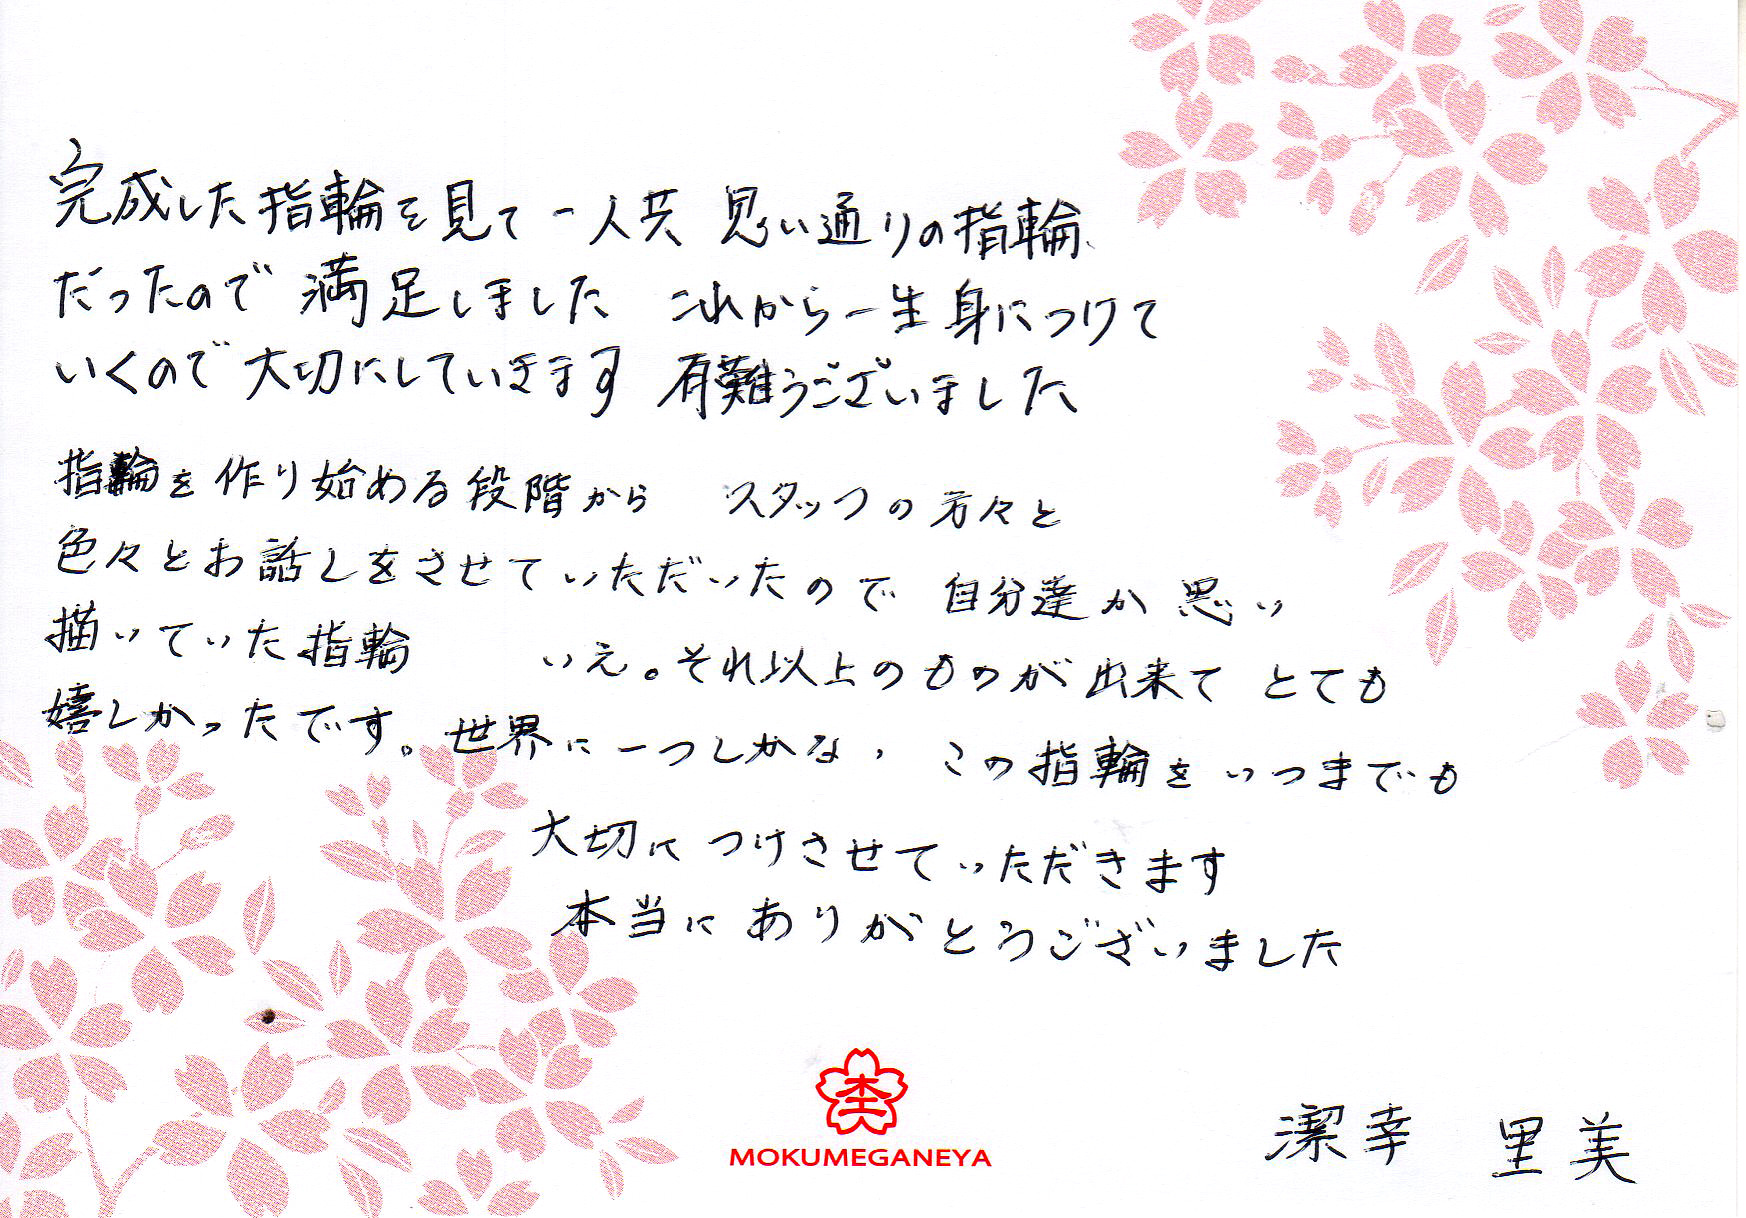 完成した指輪を見て一人共 思い通りの指輪
だったので 満足しました これから一生身につけて
いくので大切にしていきます 有難うございました
指輪を作り始める段階から スタッフの方々と
色々とお話しをさせていただいたので 自分達が思い
描いていた指輪 いえ。それ以上のものが出来て とても
嬉しかったです。世界に一つしかない この指輪をいつまでも
大切に つけさせていただきます
本当に ありがとうございました
MOKUMEGANEYA
潔幸 里美